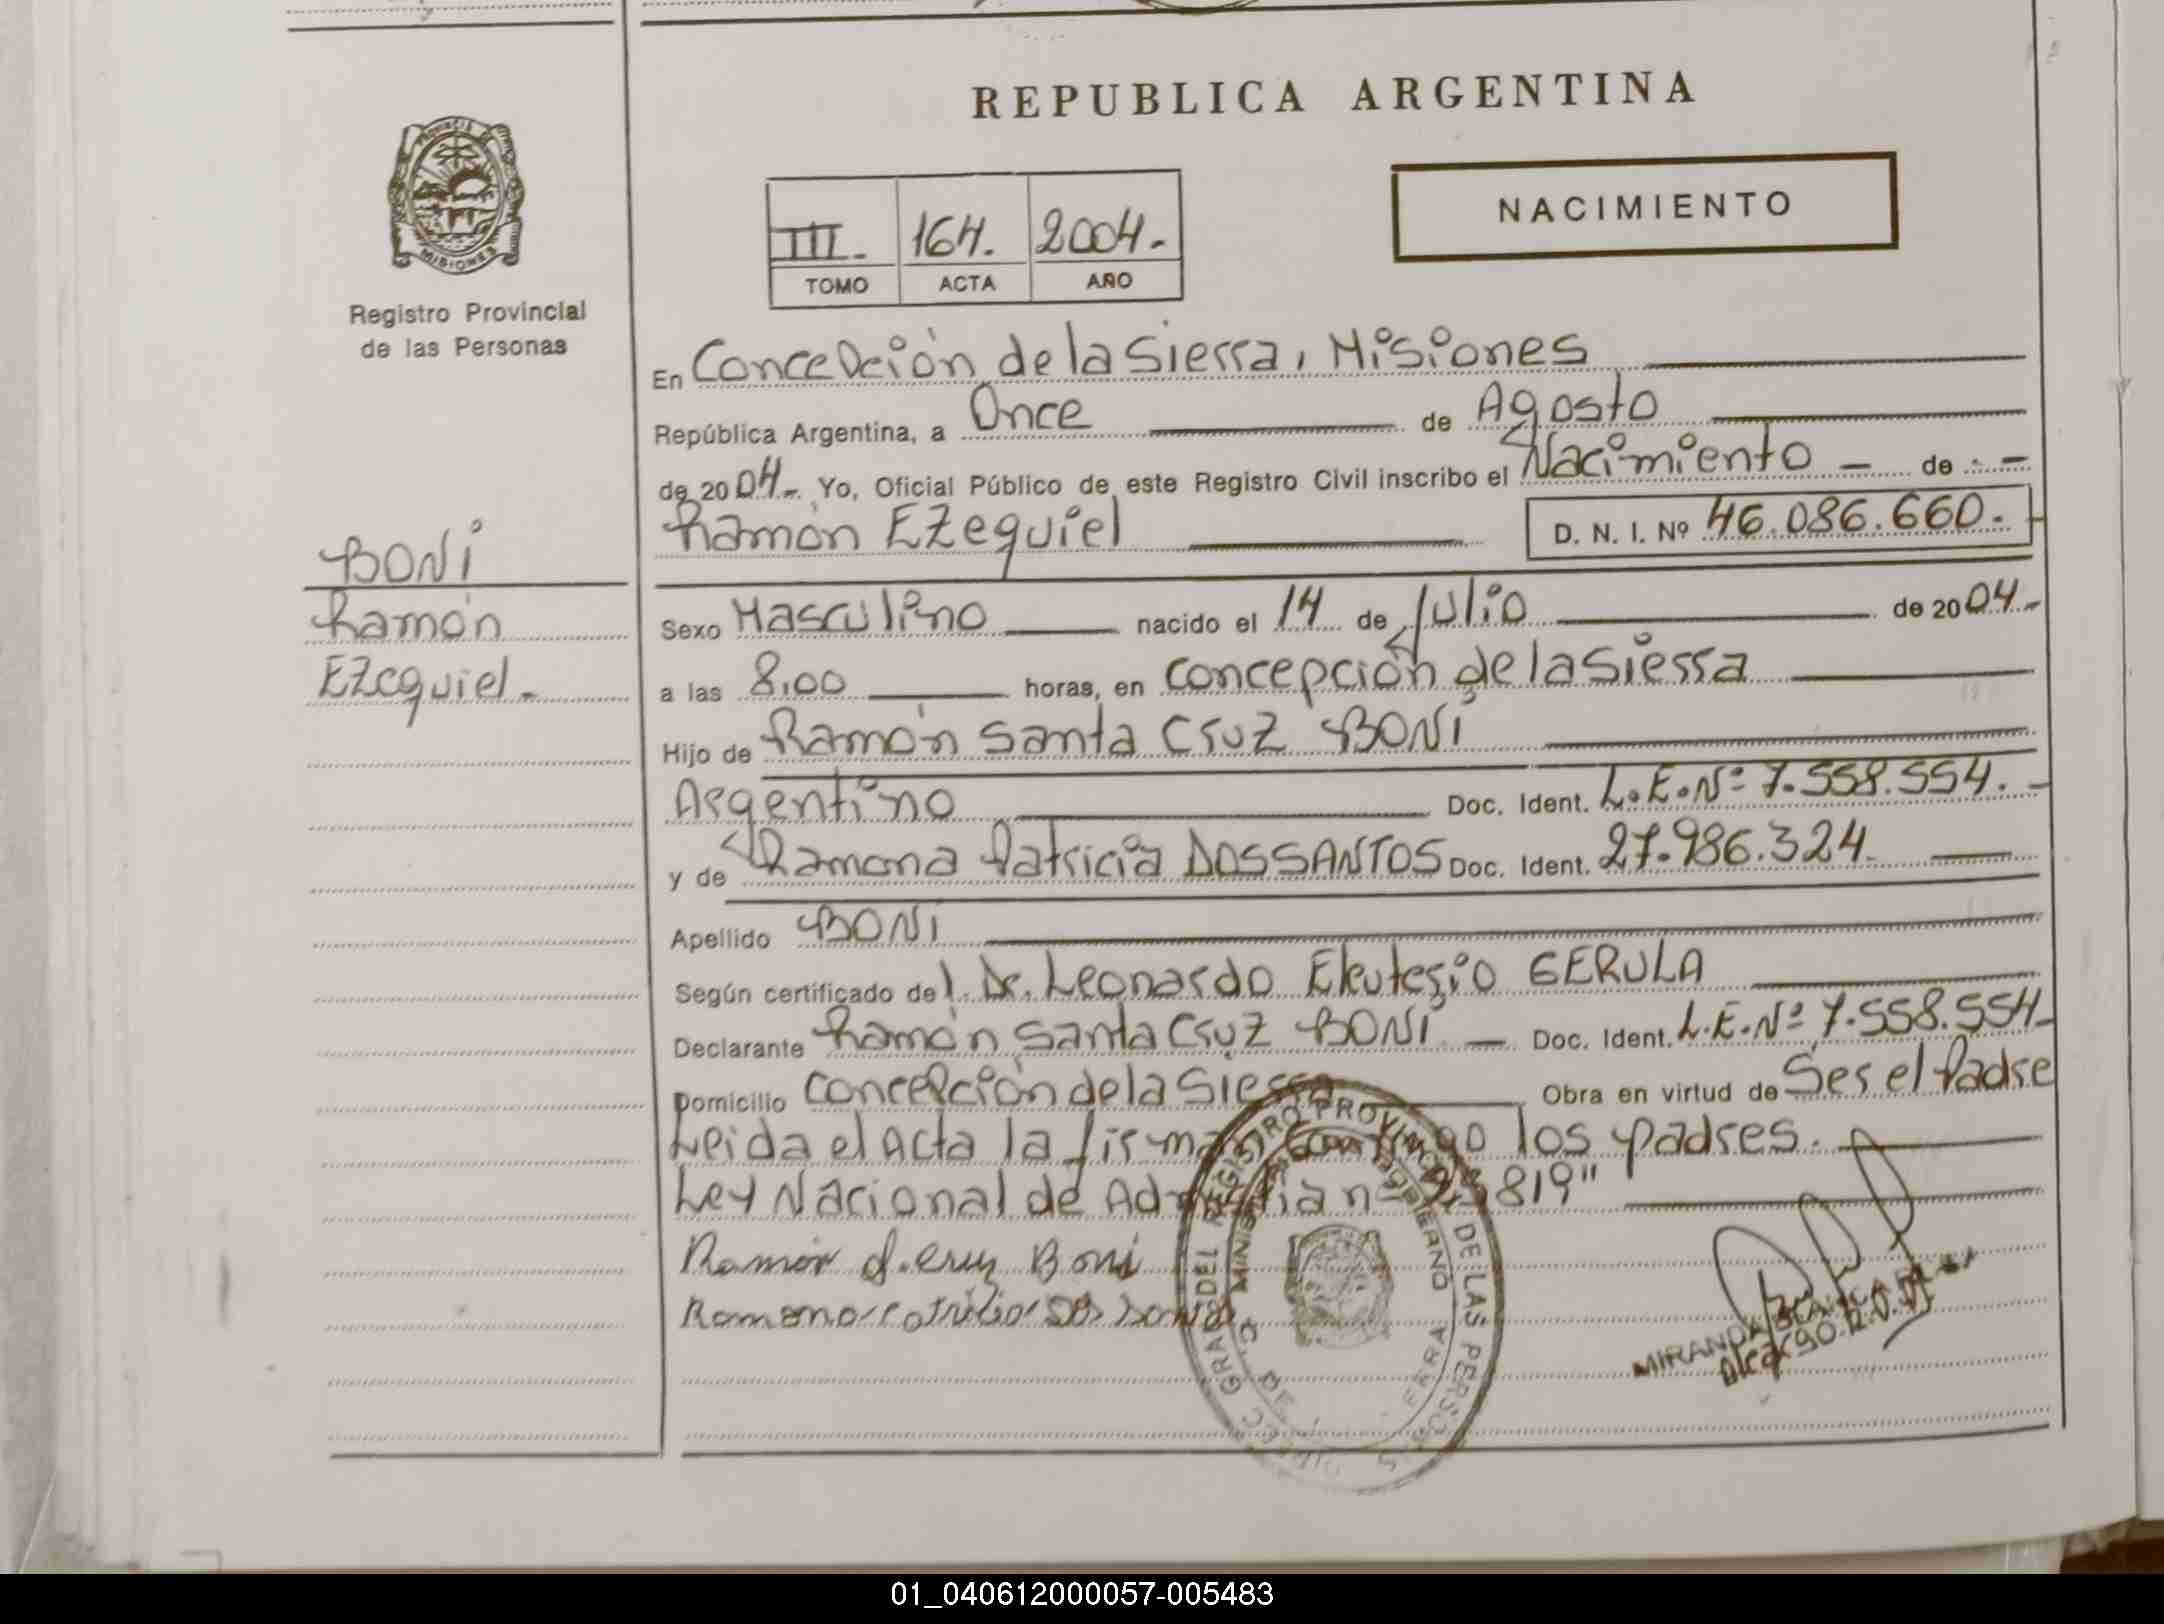 REPUBLICA ARGENTINA
PROVINCIA DE
MISIONES
Registro Provincial
de las Personas
III.- 164. 2004.-
TOMO ACTA AÑO
NACIMIENTO
En Concepción de la Sierra, Misiones
República Argentina, a Once de Agosto
de 2004.- Yo, Oficial Público de este Registro Civil inscribo el Nacimiento - de -
Ramón Ezequiel D. N. I. Nº 46.086.660.-
BONI
Ramón
Ezequiel.-
Sexo Masculino nacido el 14 de Julio de 2004.-
a las 8,00 horas, en Concepción de la Sierra
Hijo de Ramón Santa Cruz BONI
Argentino Doc. Ident. L.E.Nº 7.558.554.-
y de Ramona Patricia DOSSANTOS Doc. Ident. 27.986.324.
Apellido BONI
Según certificado del Dr. Leonardo Eleuterio GERULA
Declarante Ramón Santa Cruz BONI - Doc. Ident. L.E.Nº 7.558.554-
Domicilio Concepción de la Sierra Obra en virtud de Ser el Padre
Leida el Acta la firman conmigo los padres.
Ley Nacional de 819"
Ramón S. Cruz Boni
Ramona Patricia Dos Santos
REGISTRO PROVINCIAL DE LAS PERSONAS
MIRANDA
01_040612000057-005483